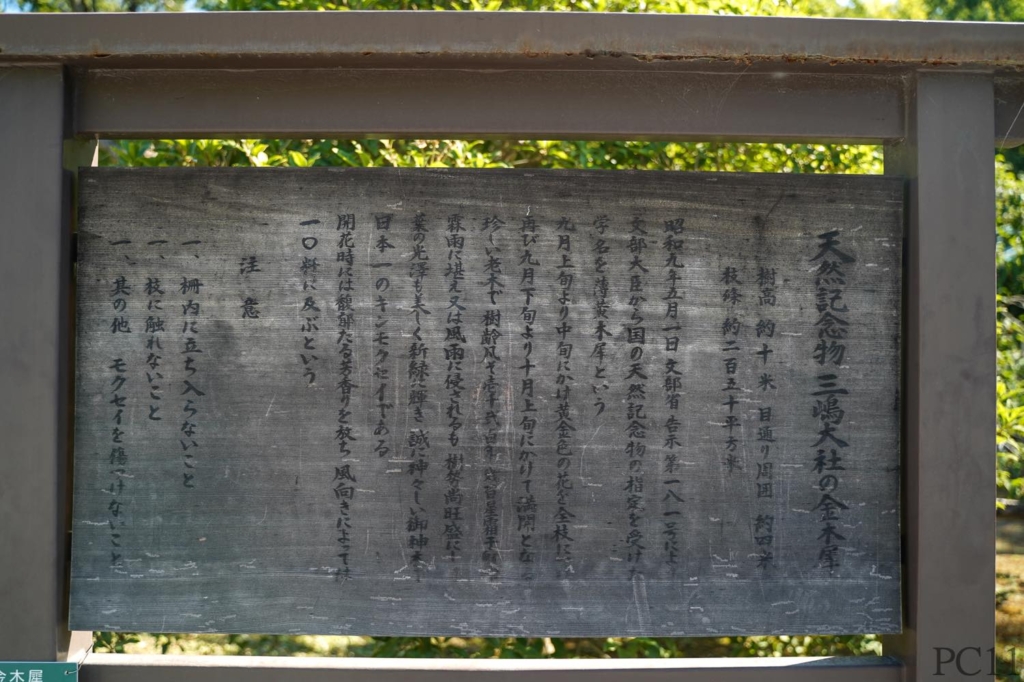 天然記念物 三嶋大社の金木犀
樹高 約十米 目通り周囲 約四米
枝條 約二百五十平方米
昭和九年五月一日文部省告示第一八一号により
文部大臣から国の天然記念物の指定を受けた
学名を薄黄木犀という
九月上旬より中旬にかけ黄金色の花を全枝に
再び九月下旬より十月上旬にかけて満開となる
珍しい老木で樹齢凡そ壱千弐百年
霖雨に堪え又は風雨に侵されるも樹勢尚旺盛に
葉の光澤も美しく新緑に輝き誠に神々しい御神木で
日本一のキンモクセイである
開花時には馥郁たる芳香りを放ち風向きによって
一〇粁に及ぶという
注意
一、柵内に立ち入らないこと
一、枝に触れないこと
一、其の他 モクセイを傷つけないこと
金木犀
PC11